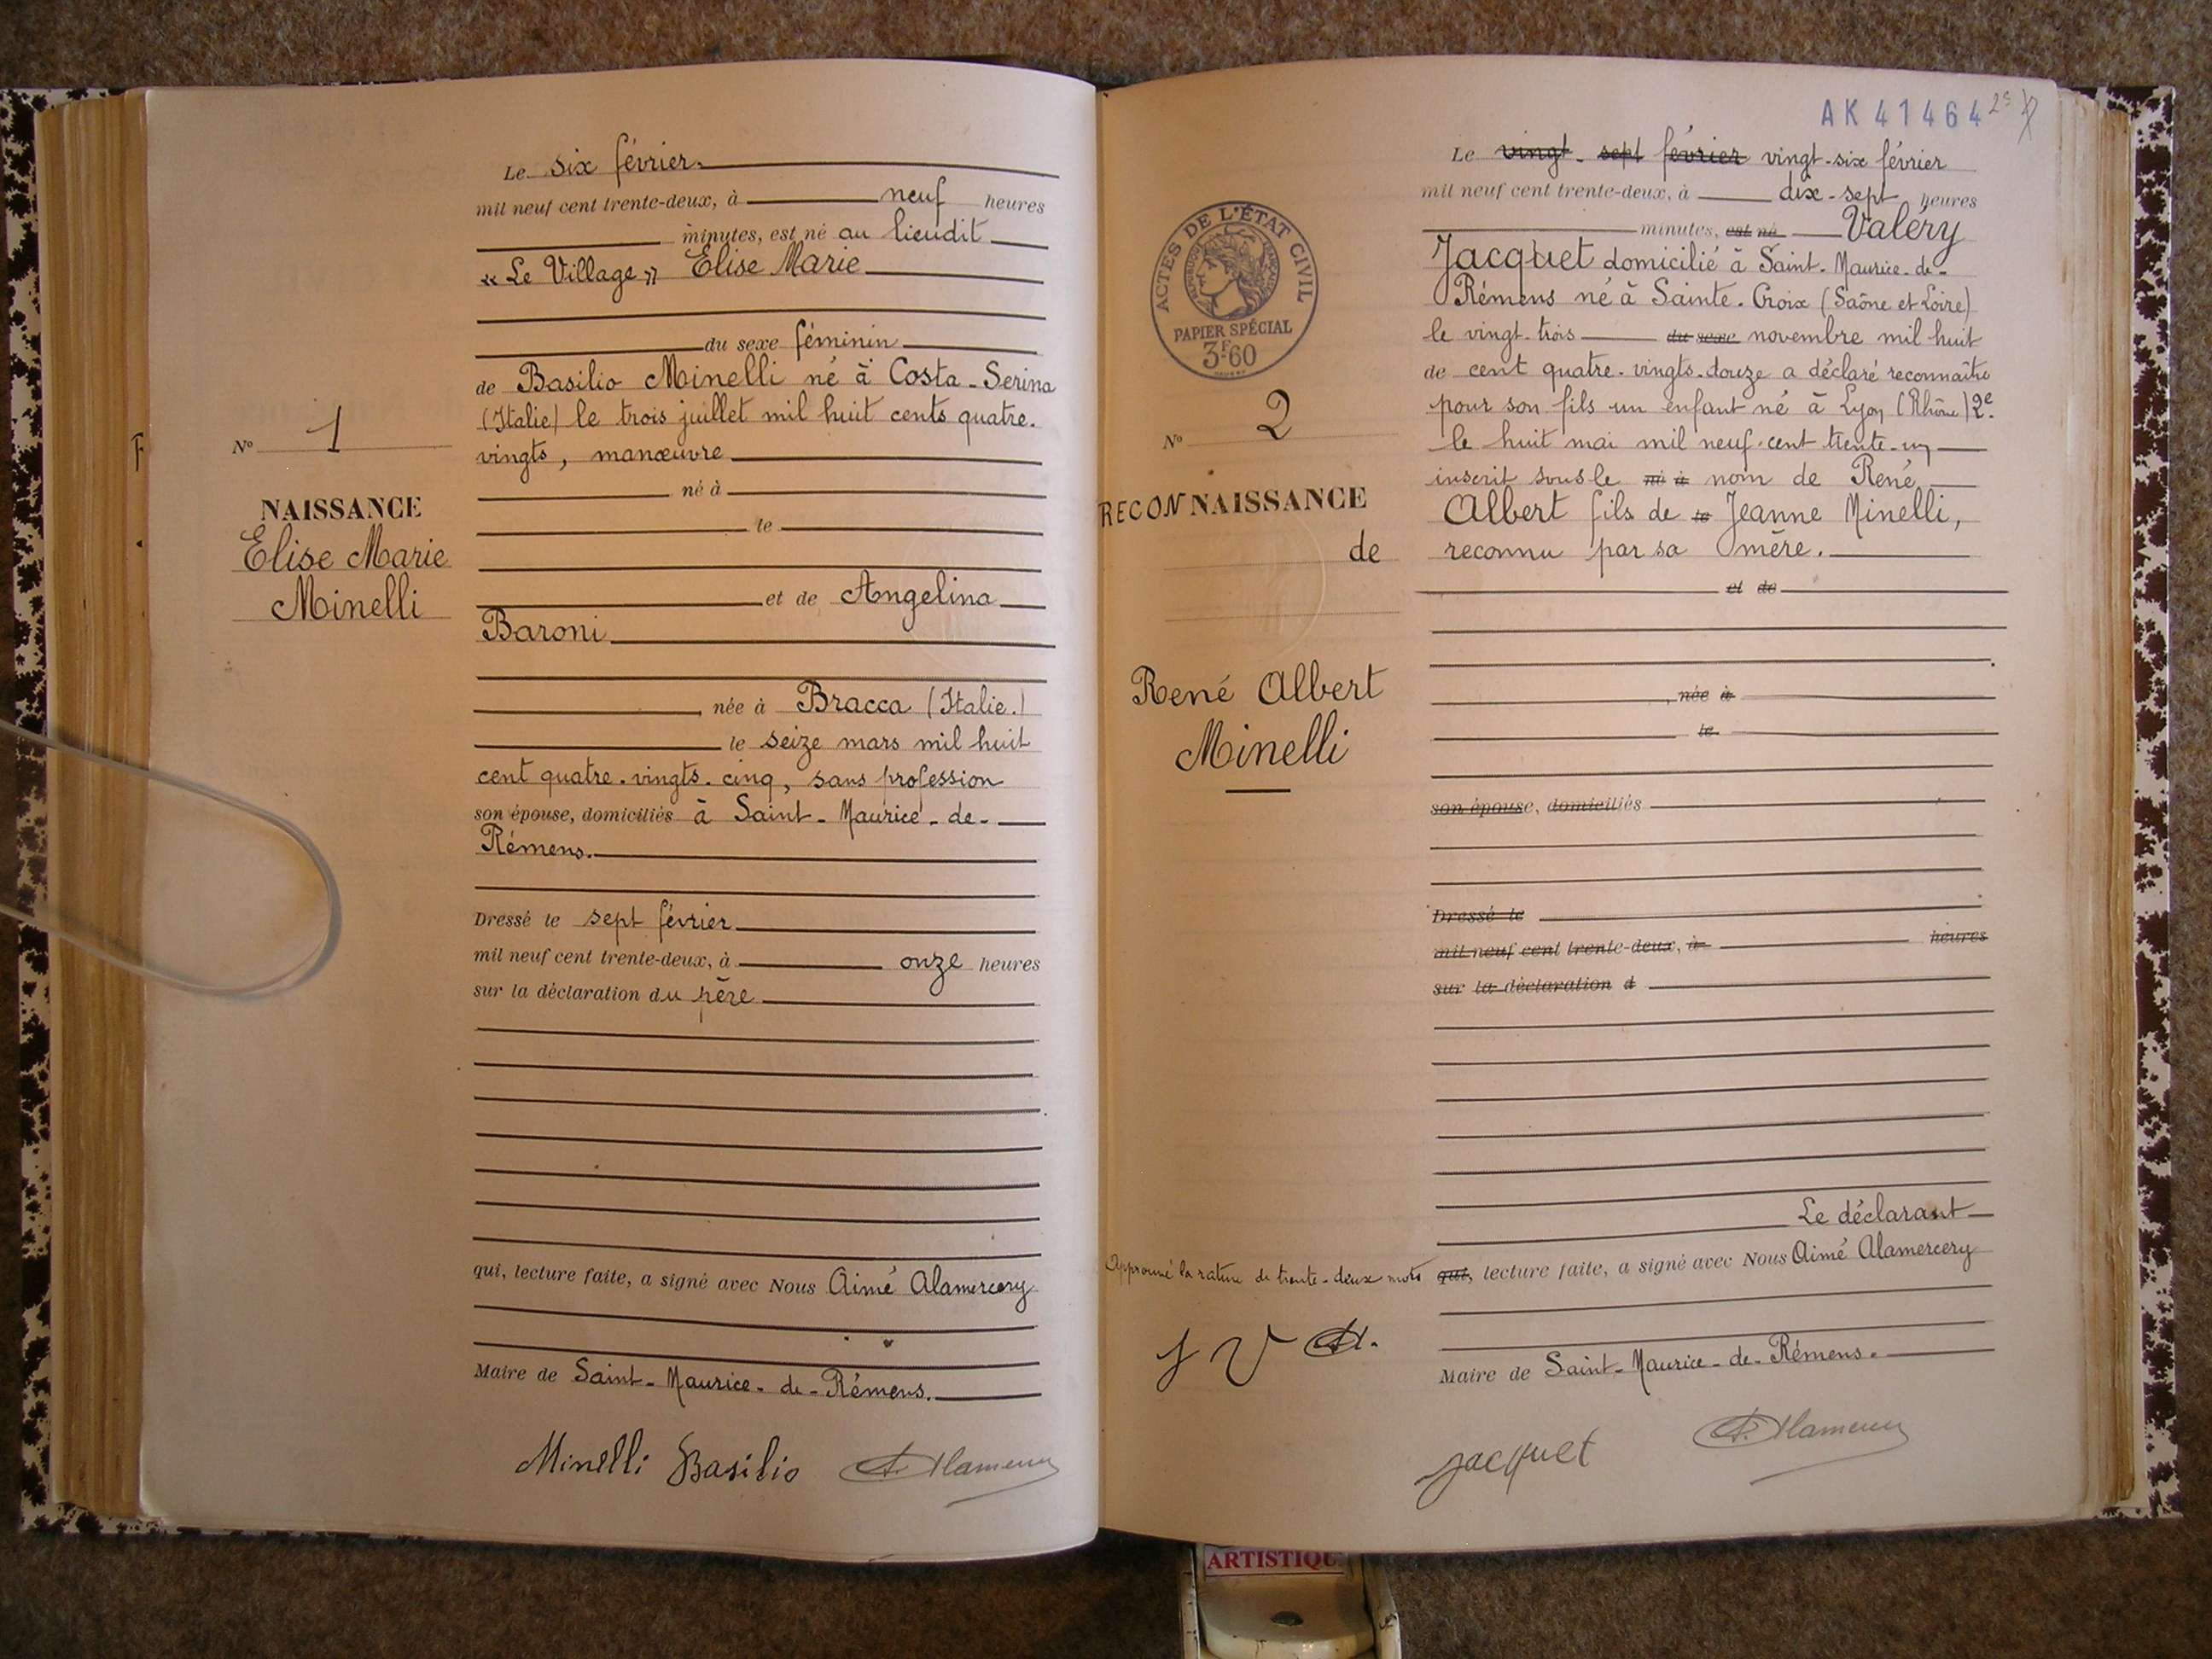 Le six février.
mil neuf cent trente-deux, à neuf heures
minutes, est né au lieudit
« Le Village » Elise Marie
du sexe féminin
de Basilio Minelli né à Costa-Serina
(Italie) le trois juillet mil huit cents quatre-
vingts, manœuvre
né à
le
et de Angelina
Baroni
née à Bracca (Italie.)
le seize mars mil huit
cent quatre-vingts-cinq, sans profession
son épouse, domiciliés à Saint-Maurice-de-
Rémens.
Dressé le sept février
mil neuf cent trente-deux, à onze heures
sur la déclaration du père
qui, lecture faite, a signé avec Nous Aimé Alamercery
Maire de Saint-Maurice-de-Rémens.
Minelli Basilio
N° 1
NAISSANCE
Elise Marie
Minelli
AK 41464
Le vingt-sept février vingt-six février
mil neuf cent trente-deux, à dix-sept heures
minutes, est né Valéry
Jacquet domicilié à Saint-Maurice-de-
Rémens né à Sainte-Croix (Saône et Loire)
le vingt-trois du sexe novembre mil huit
de cent quatre-vingts-douze a déclaré reconnaître
pour son fils un enfant né à Lyon (Rhône) 2e
le huit mai mil neuf cent trente-un
inscrit sous le né à nom de René
Albert fils de le Jeanne Minelli,
reconnu par sa mère.
et de
, née à
le
son épouse, domiciliés
Dressé le
mil neuf cent trente-deux, à heures
sur la déclaration d
Le déclarant
qui, lecture faite, a signé avec Nous Aimé Alamercery
Maire de Saint-Maurice-de-Rémens.
Jacquet
ACTES DE L'ÉTAT CIVIL
PAPIER SPÉCIAL
3F60
N° 2
RECONNAISSANCE
de
René Albert
Minelli
Approuvé la rature de trente-deux mots
J V A.
ARTISTIQU